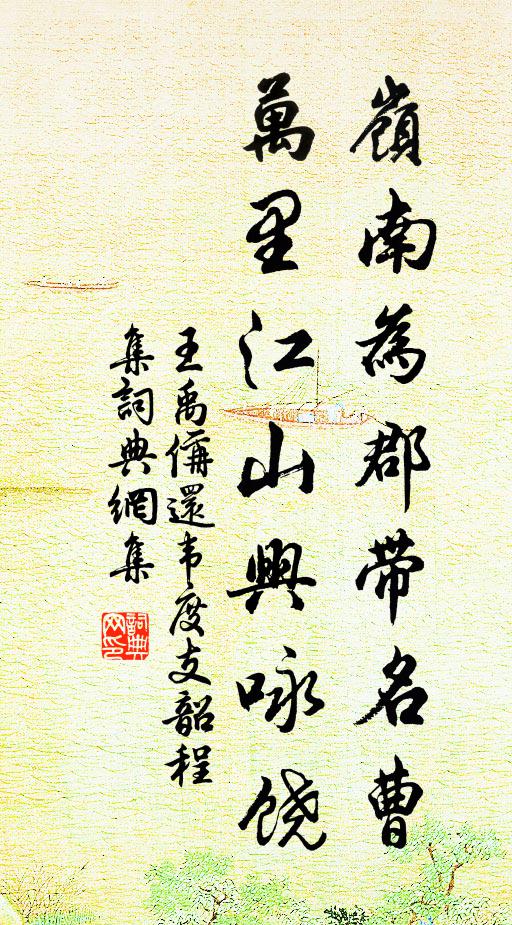 嶺南為郡帶名曹
萬里江山興咏饒
王禹偁還韦度支韶程
集詞典網集
詞典网印